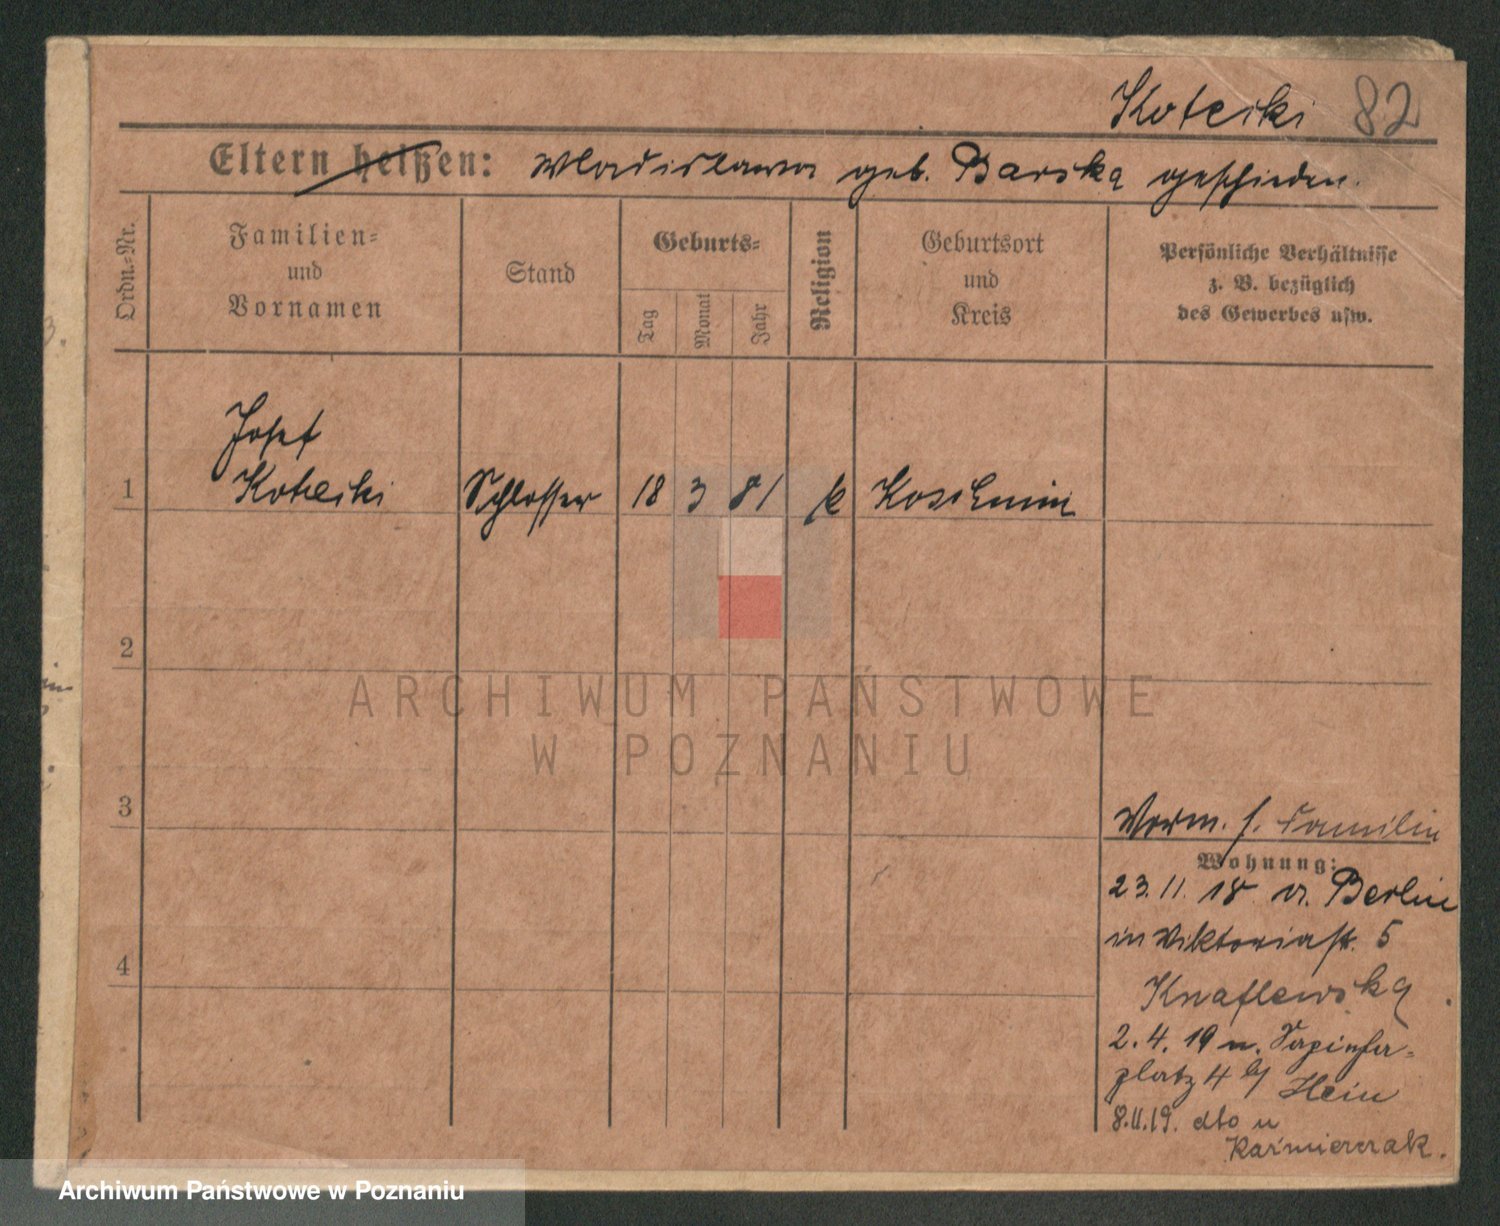 Koteiki 82
Eltern heißen: Wladislawa geb. Barska geschieden.
Ordn.-Nr.
Familien-
und
Vornamen
Stand
Geburts-
Tag
Monat
Jahr
Religion
Geburtsort
und
Kreis
Persönliche Verhältnisse
z. B. bezüglich
des Gewerbes usw.
Josef
1 Koteiki Schlosser 18 3 81 k Koschmin
2
ARCHIWUM PAŃSTWOWE
W POZNANIU
3
Vorm. s. Familie
Wohnung:
23.11.18 v. Berlin
in Viktoriastr. 5
4
Knaflewska
2.4.19 n. Sapieha-
platz 4 b/ Hein
8.11.19. dto u
Kaźmierczak.
Archiwum Państwowe w Poznaniu